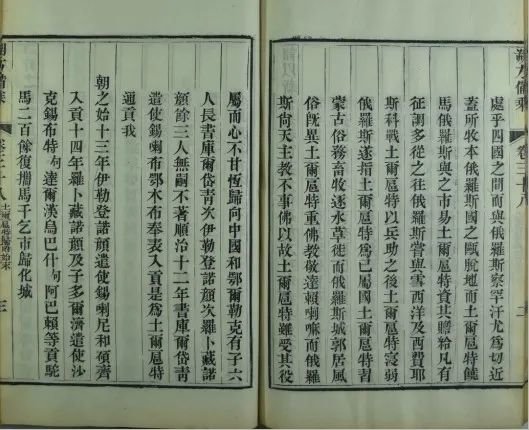 朔方備乘 卷三十八
處乎四國之間而與俄羅斯察罕汗尤為切近
蓋所牧本俄羅斯國之甌脫地而土爾扈特
馬俄羅斯與之市易土爾扈特資其贍給凡有
征調多從之往俄羅斯嘗與雪西洋及西費耶
斯科戰土爾扈特以兵助之後土爾扈特寖弱
俄羅斯遂指土爾扈特為己屬國土爾扈特習
蒙古俗務畜牧逐水草徙而俄羅斯城郭居風
俗旣異土爾扈特重佛教敬達賴喇嘛而俄羅
斯尚天主教不事佛以故土爾扈特雖受其役
屬而心不甘恆歸向中國和鄂爾勒克有子六
人長書庫爾岱青次伊勒登諾顏次羅卜藏諾
顏餘三人無嗣不著順治十二年書庫爾岱青
遣使錫喇布鄂木布奉表入貢是為土爾扈特
通貢我
朝之始十三年伊勒登諾顏遣使錫喇尼和碩齊
入貢十四年羅卜藏諾顏及子多爾濟遣使沙
克錫布特達爾漢烏巴什阿巴賴等貢駝
馬二百餘復攜馬千乞市歸化城
朔方備乘 卷三十八 土爾扈特歸附始末 三